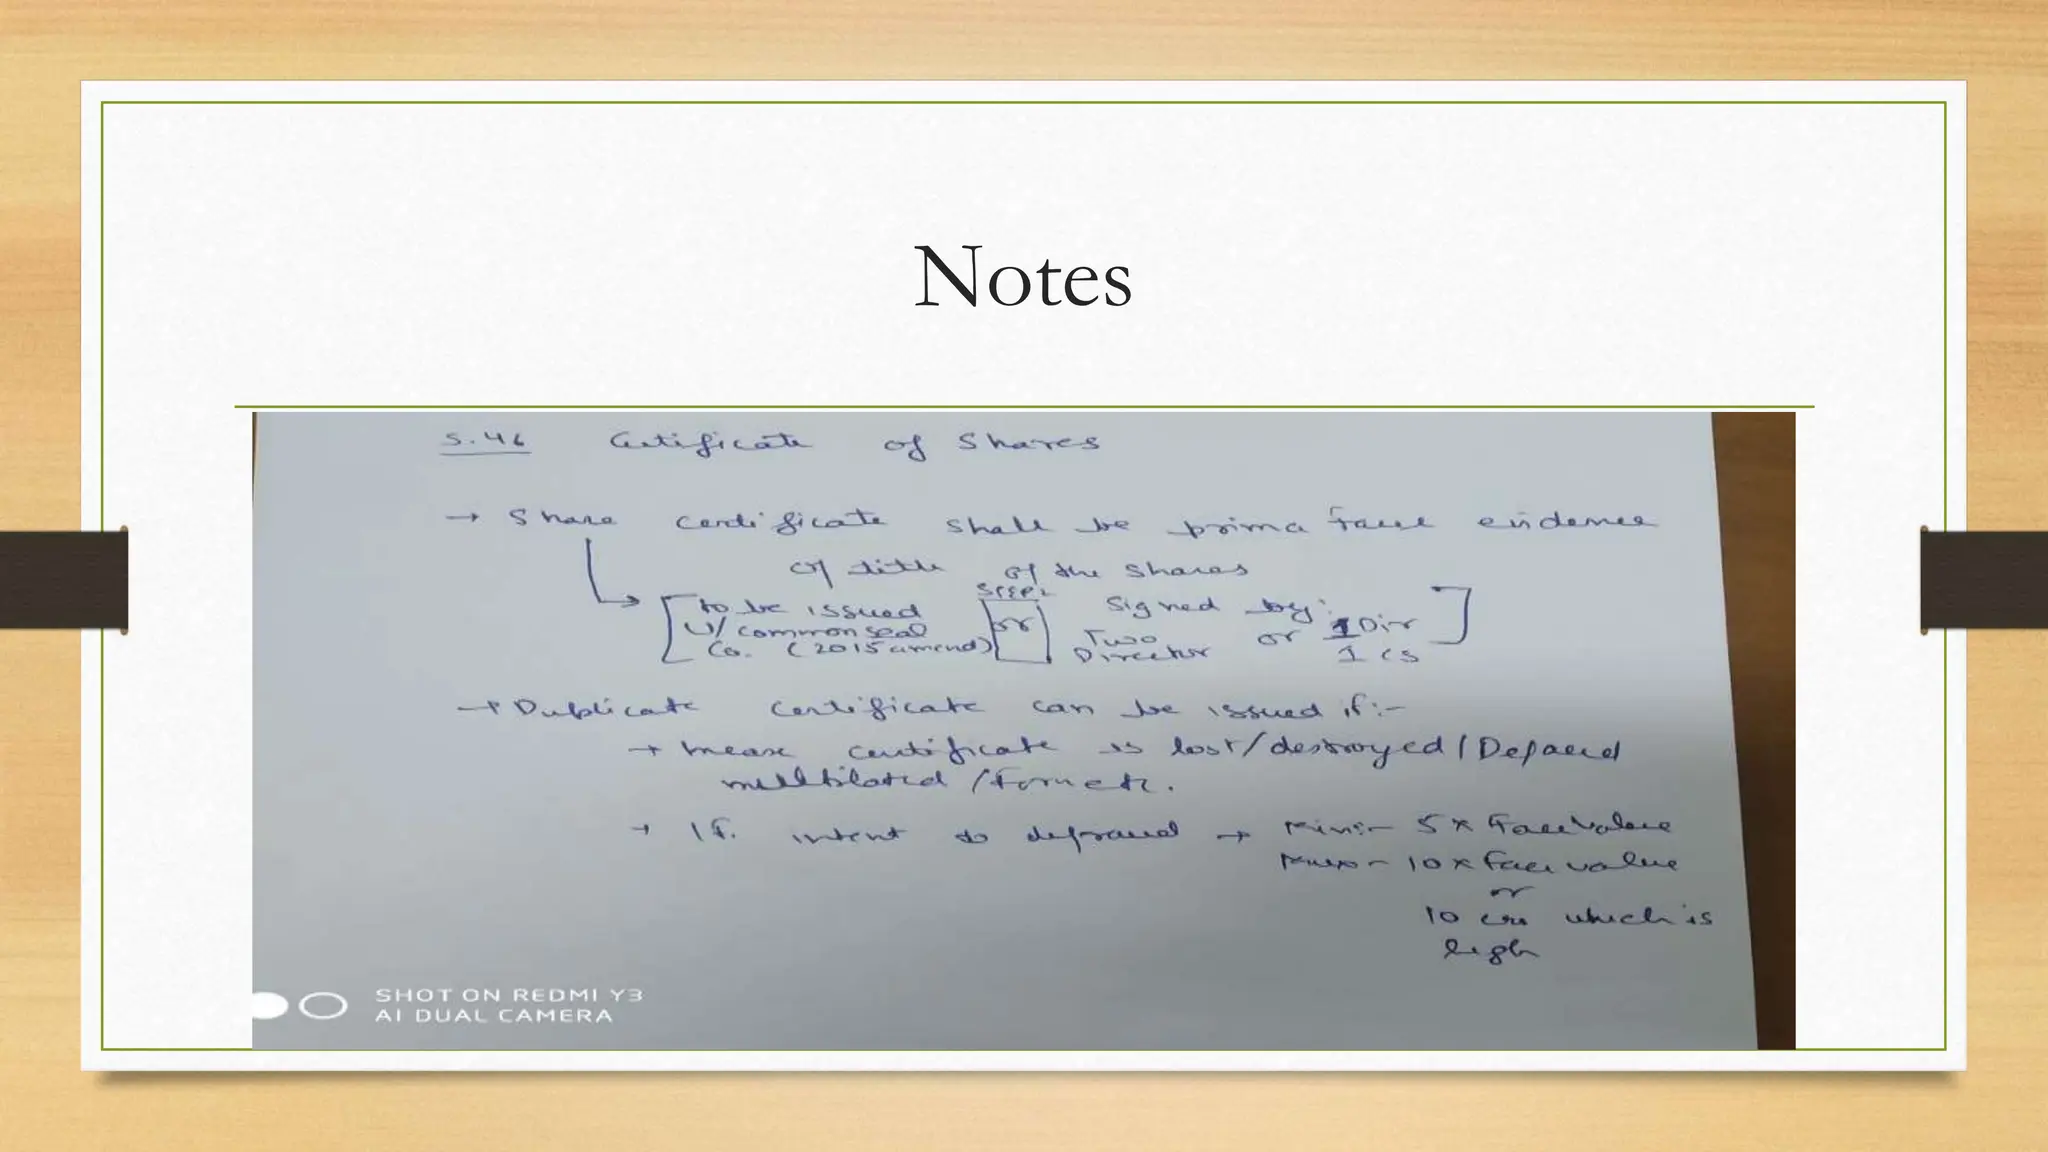 Notes
S.46 Certificate of Shares
→ Share certificate shall be prima facie evidence
of title of the shares
[to be issued
U/ common seal
Co. (2015 amend)
or
Signed by:
Two
Director
or
1 Dir
1 CS]
→ Duplicate certificate can be issued if:-
→ certificate is lost/destroyed/Defaced
/torn etc.
→ If. intent to defraud → Min:- 5 x Face value
Max - 10 x Face value
or
10 crs which is
high
SHOT ON REDMI Y3
AI DUAL CAMERA